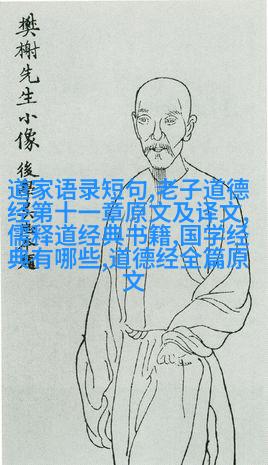 樊榭先生小像
後學
道家语录短句,老子道德
经第十一章原文及译文,
儒释道经典书籍,国学经
典有哪些,道德经全篇原
文